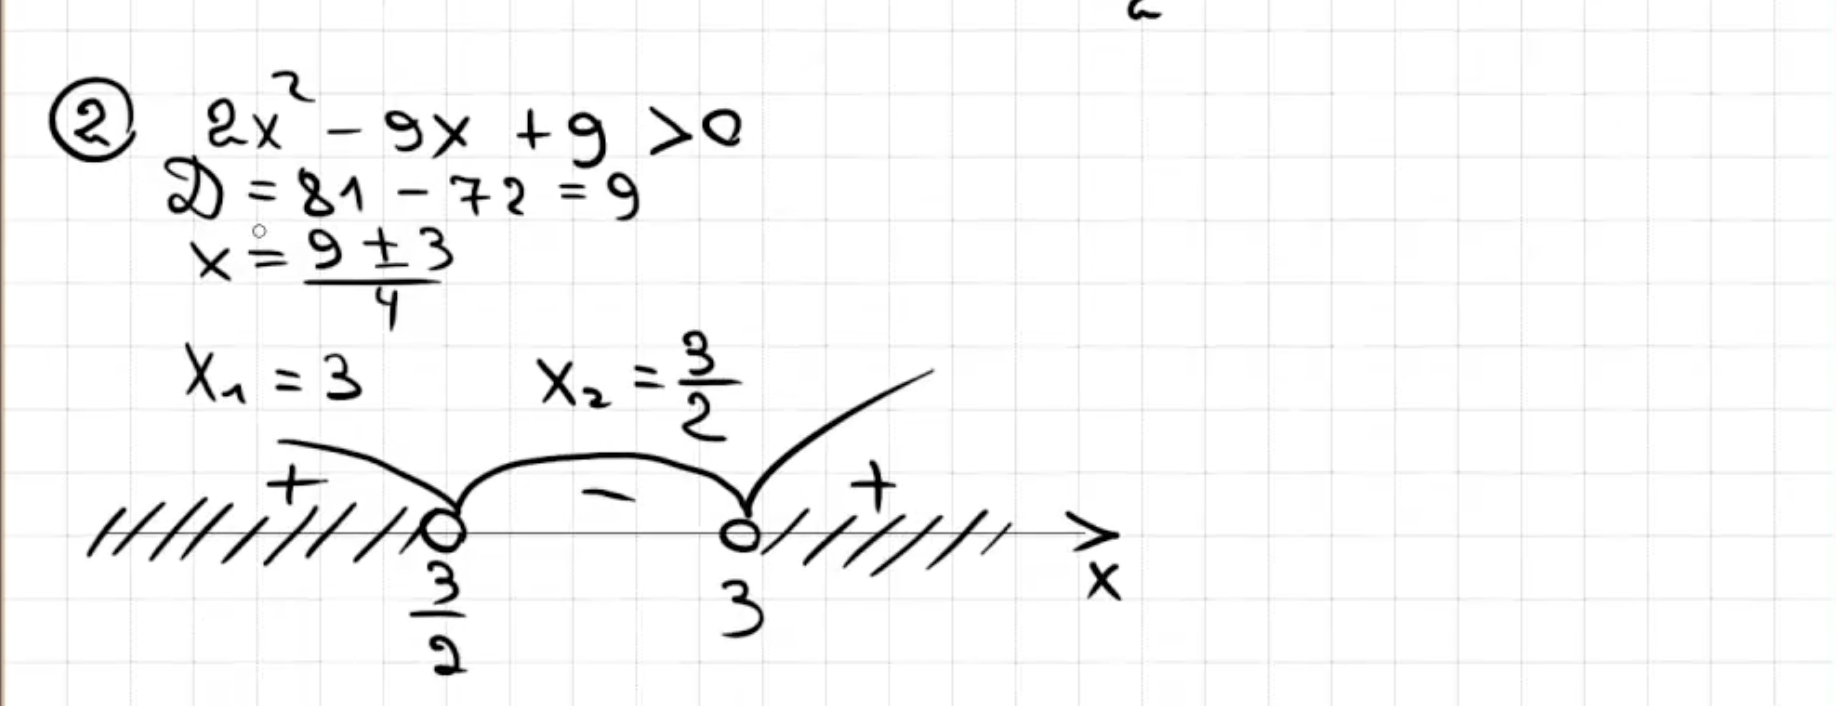 ② 2x² - 9x + 9 > 0
D = 81 - 72 = 9
x = (9 ± 3)/4
x₁ = 3 x₂ = 3/2
+ - +
3/2 3 x